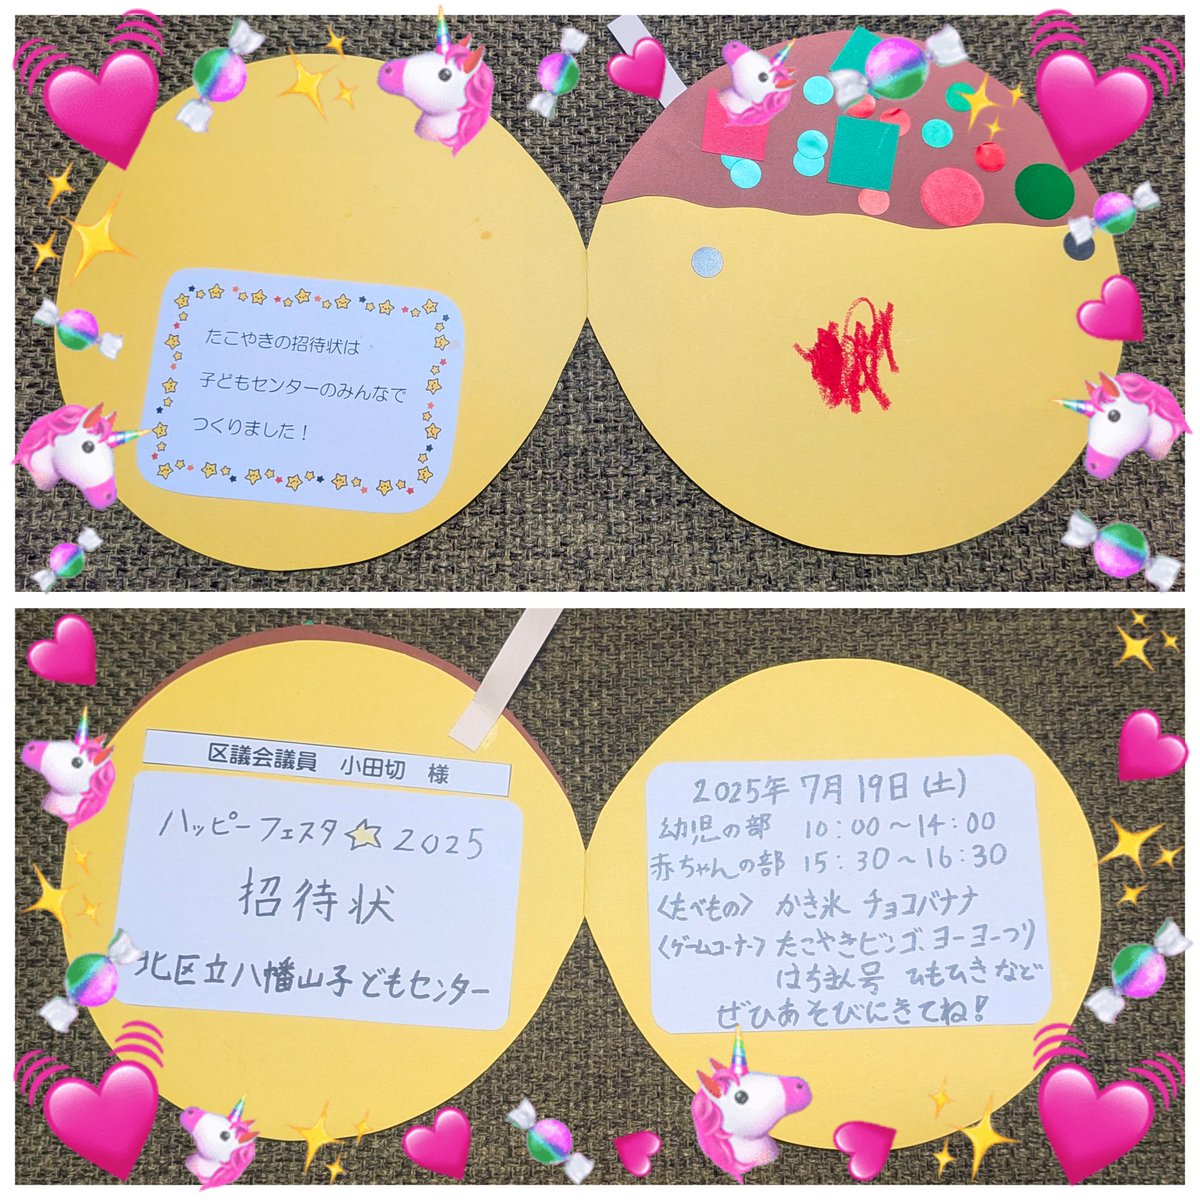 たこやきの招待状は
子どもセンターのみんなで
つくりました！
区議会議員 小田切 様
ハッピーフェスタ☆2025
招待状
北区立八幡山子どもセンター
2025年 7月19日(土)
幼児の部 10:00～14:00
赤ちゃんの部 15:30～16:30
〈たべもの〉 かき氷 チョコバナナ
〈ゲームコーナー〉 たこやきビンゴ、ヨーヨーつり
はちまん号 ひもひきなど
ぜひあそびにきてね！